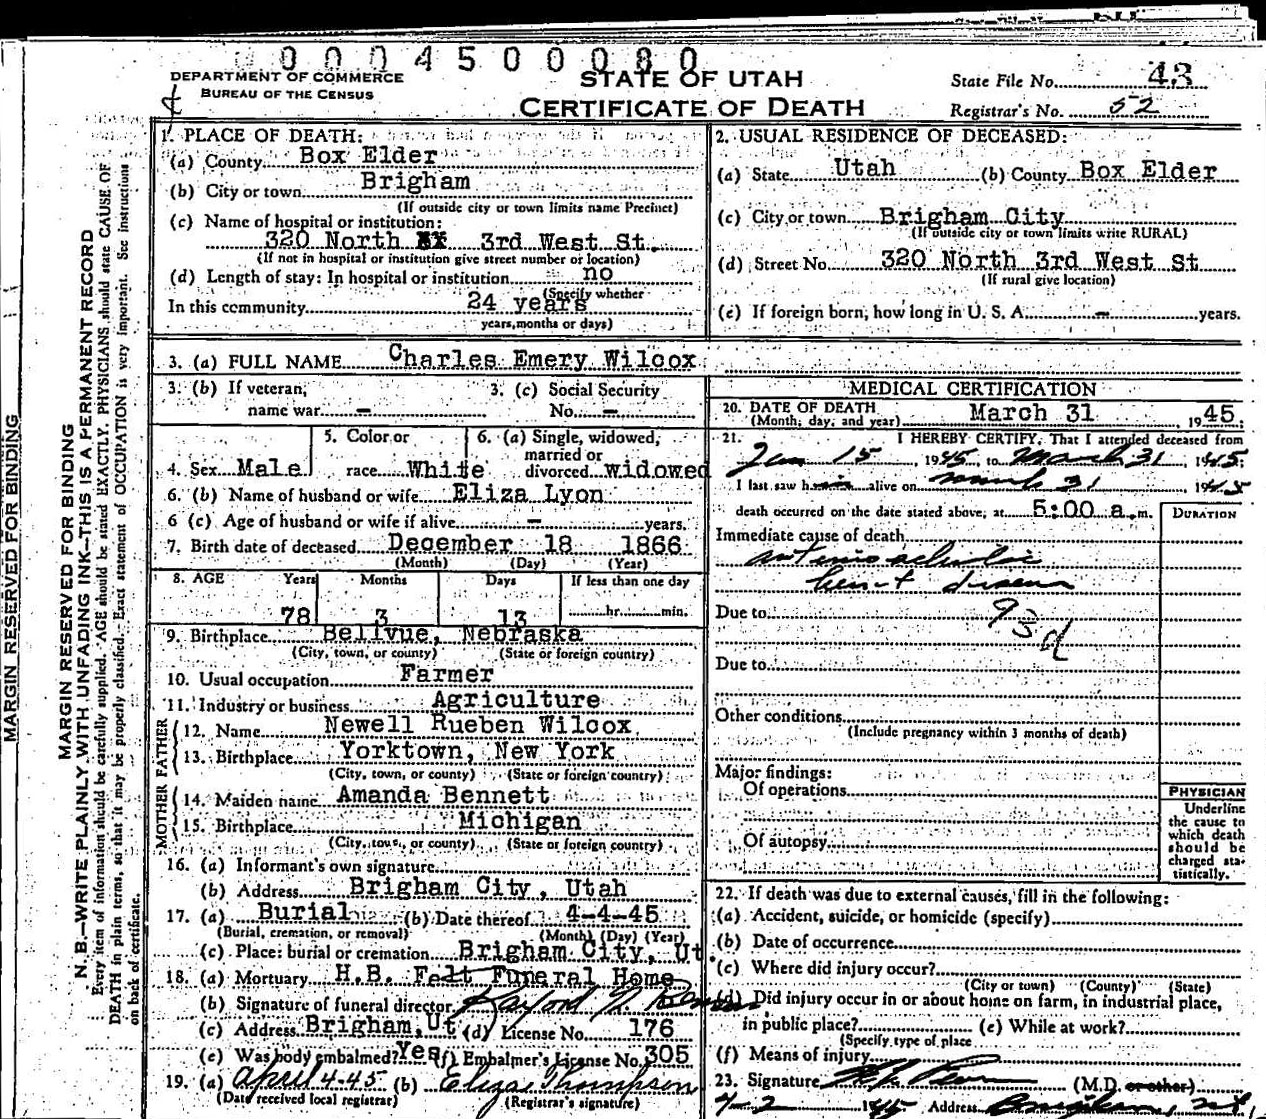 0004500080
DEPARTMENT OF COMMERCE
BUREAU OF THE CENSUS
STATE OF UTAH
CERTIFICATE OF DEATH
State File No. 43
Registrar's No. 52
MARGIN RESERVED FOR BINDING
MARGIN RESERVED FOR BINDING
N. B.—WRITE PLAINLY WITH UNFADING INK—THIS IS A PERMANENT RECORD
Every item of information should be carefully supplied. AGE should be stated EXACTLY. PHYSICIANS should state CAUSE OF
DEATH in plain terms, so that it may be properly classified. Exact statement of OCCUPATION is very important. See instructions
on back of certificate.
1. PLACE OF DEATH:
(a) County Box Elder
(b) City or town Brigham
(If outside city or town limits name Precinct)
(c) Name of hospital or institution:
320 North 3rd West St.
(If not in hospital or institution give street number or location)
(d) Length of stay: In hospital or institution no
(Specify whether
In this community 24 years
years, months or days)
2. USUAL RESIDENCE OF DECEASED:
(a) State Utah (b) County Box Elder
(c) City or town Brigham City
(If outside city or town limits write RURAL)
(d) Street No. 320 North 3rd West St
(If rural give location)
(e) If foreign born, how long in U. S. A. — years.
3. (a) FULL NAME Charles Emery Wilcox
3. (b) If veteran, name war —
3. (c) Social Security No. —
4. Sex Male
5. Color or race White
6. (a) Single, widowed, married or divorced widowed
6. (b) Name of husband or wife Eliza Lyon
6 (c) Age of husband or wife if alive — years.
7. Birth date of deceased December 18 1866
(Month) (Day) (Year)
8. AGE Years Months Days If less than one day
78 3 13 hr. min.
9. Birthplace Bellvue, Nebraska
(City, town, or county) (State or foreign country)
10. Usual occupation Farmer
11. Industry or business Agriculture
FATHER
12. Name Newell Rueben Wilcox
13. Birthplace Yorktown, New York
(City, town, or county) (State or foreign country)
MOTHER
14. Maiden name Amanda Bennett
15. Birthplace Michigan
(City, town, or county) (State or foreign country)
16. (a) Informant's own signature
(b) Address Brigham City, Utah
17. (a) Burial (b) Date thereof 4-4-45
(Burial, cremation, or removal) (Month) (Day) (Year)
(c) Place: burial or cremation Brigham City, Ut.
18. (a) Mortuary H.B. Felt Funeral Home
(b) Signature of funeral director
(c) Address Brigham, Ut (d) License No. 176
(e) Was body embalmed? Yes (f) Embalmer's License No. 305
19. (a) April 4-45 (b) Eliza Thompson
(Date received local registrar) (Registrar's signature)
MEDICAL CERTIFICATION
20. DATE OF DEATH March 31 1945
(Month, day, and year)
21. I HEREBY CERTIFY, That I attended deceased from
Jan 15, 1945, to March 31, 1945;
I last saw him alive on March 31, 1945
death occurred on the date stated above, at 5:00 a.m.
DURATION
Immediate cause of death
heart disease
Due to 93d
Due to
Other conditions
(Include pregnancy within 3 months of death)
Major findings:
Of operations
Of autopsy
PHYSICIAN
Underline
the cause to
which death
should be
charged sta-
tistically.
22. If death was due to external causes, fill in the following:
(a) Accident, suicide, or homicide (specify)
(b) Date of occurrence
(c) Where did injury occur?
(City or town) (County) (State)
(d) Did injury occur in or about home on farm, in industrial place,
in public place? (e) While at work?
(Specify type of place
(f) Means of injury
23. Signature (M.D. or other)
4-2 1945 Address Brigham, Ut.